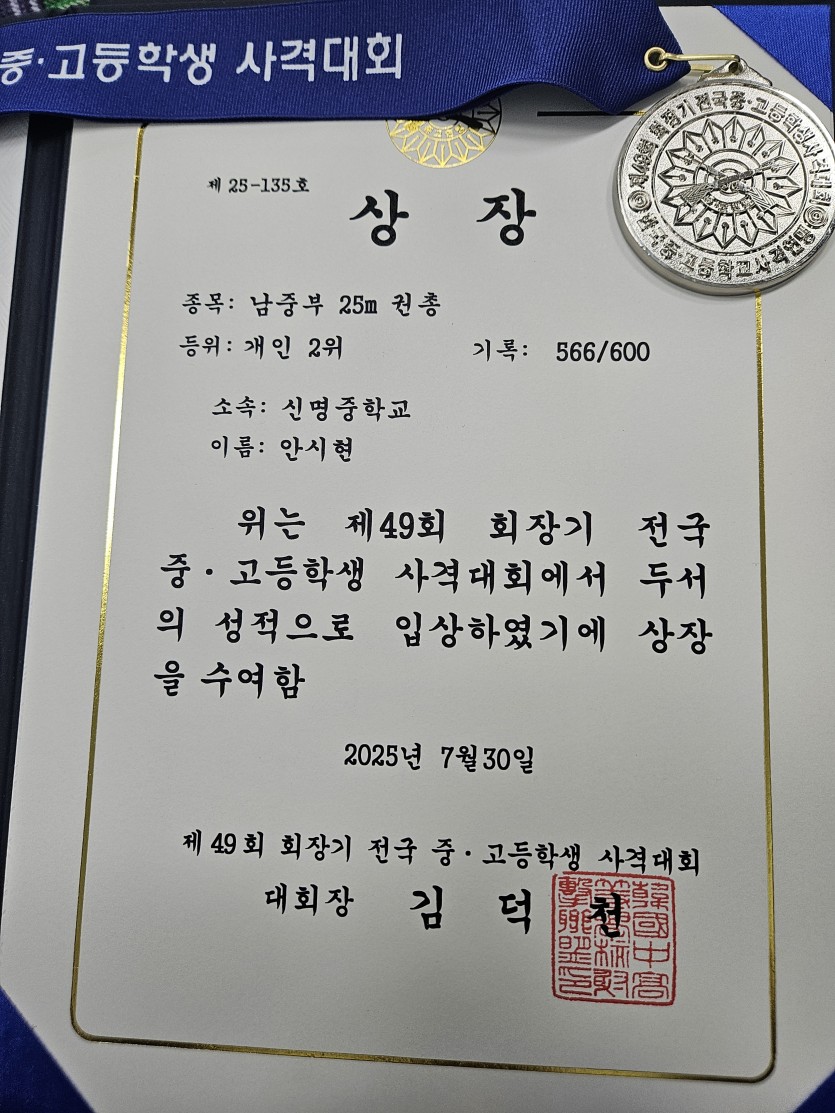 중·고등학생 사격대회
제49회 회장기 전국중·고등학생사격대회
한국중·고등학교사격연맹
제 25-135호
상 장
종목: 남중부 25m 권총
등위: 개인 2위 기록: 566/600
소속: 신명중학교
이름: 안시현
위는 제49회 회장기 전국
중·고등학생 사격대회에서 두서
의 성적으로 입상하였기에 상장
을 수여함
2025년 7월30일
제 49회 회장기 전국 중·고등학생 사격대회
대회장 김 덕 천